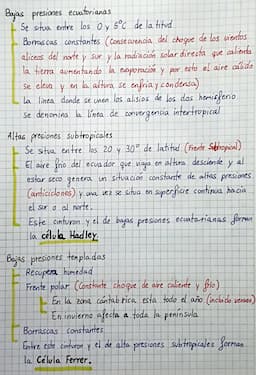 Bajas presiones ecuatorianas
Se situa entre los 0 y 5°C de latitud
Borrascas constantes (Consecuencia del choque de los vientos
aliceos del norte y sur y la radiación solar directa que calienta
la tierra aumentando la evaporación y por esto el aire cálido
se eleva y en la altura se enfria y condensa)
La linea donde se unen los alisios de los dos hemisferio
se denomina la linea de convergencia intertropical
Altas presiones subtropicales
Se situa entre los 20 y 30° de latitud (Frente Subtropical)
El aire frio del ecuador que viaja en altura desciende y al
estar seco genera un situación constante de altas presiones
(anticiclones) y una vez se situa en superficie continua hacia
el sur o al norte.
Este cinturon y el de bajas presiones ecuatorianas forman
la célula Hadley.
Bajas presiones templadas
Recupera humedad
Frente polar (Constante choque de aire caliente y frio)
En la zona cantabrica esta todo el año (incluido verano)
En invierno afecta a toda la peninsula
Borrascas constantes
Entre este cinturon y el de alta presiones subtropicales forman
la Célula Ferrer.